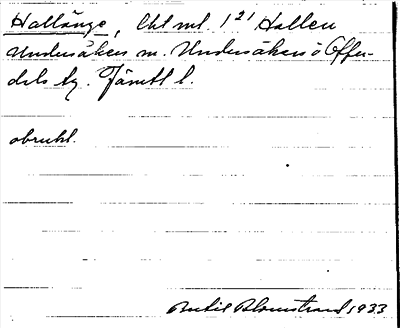 Hallänge, lht mt. 1²¹ Hallen
Undersåkers m. Undersåkers o Offer-
dals tg. Jämtl l.
obrukl.
Bertil Blomstrand 1933